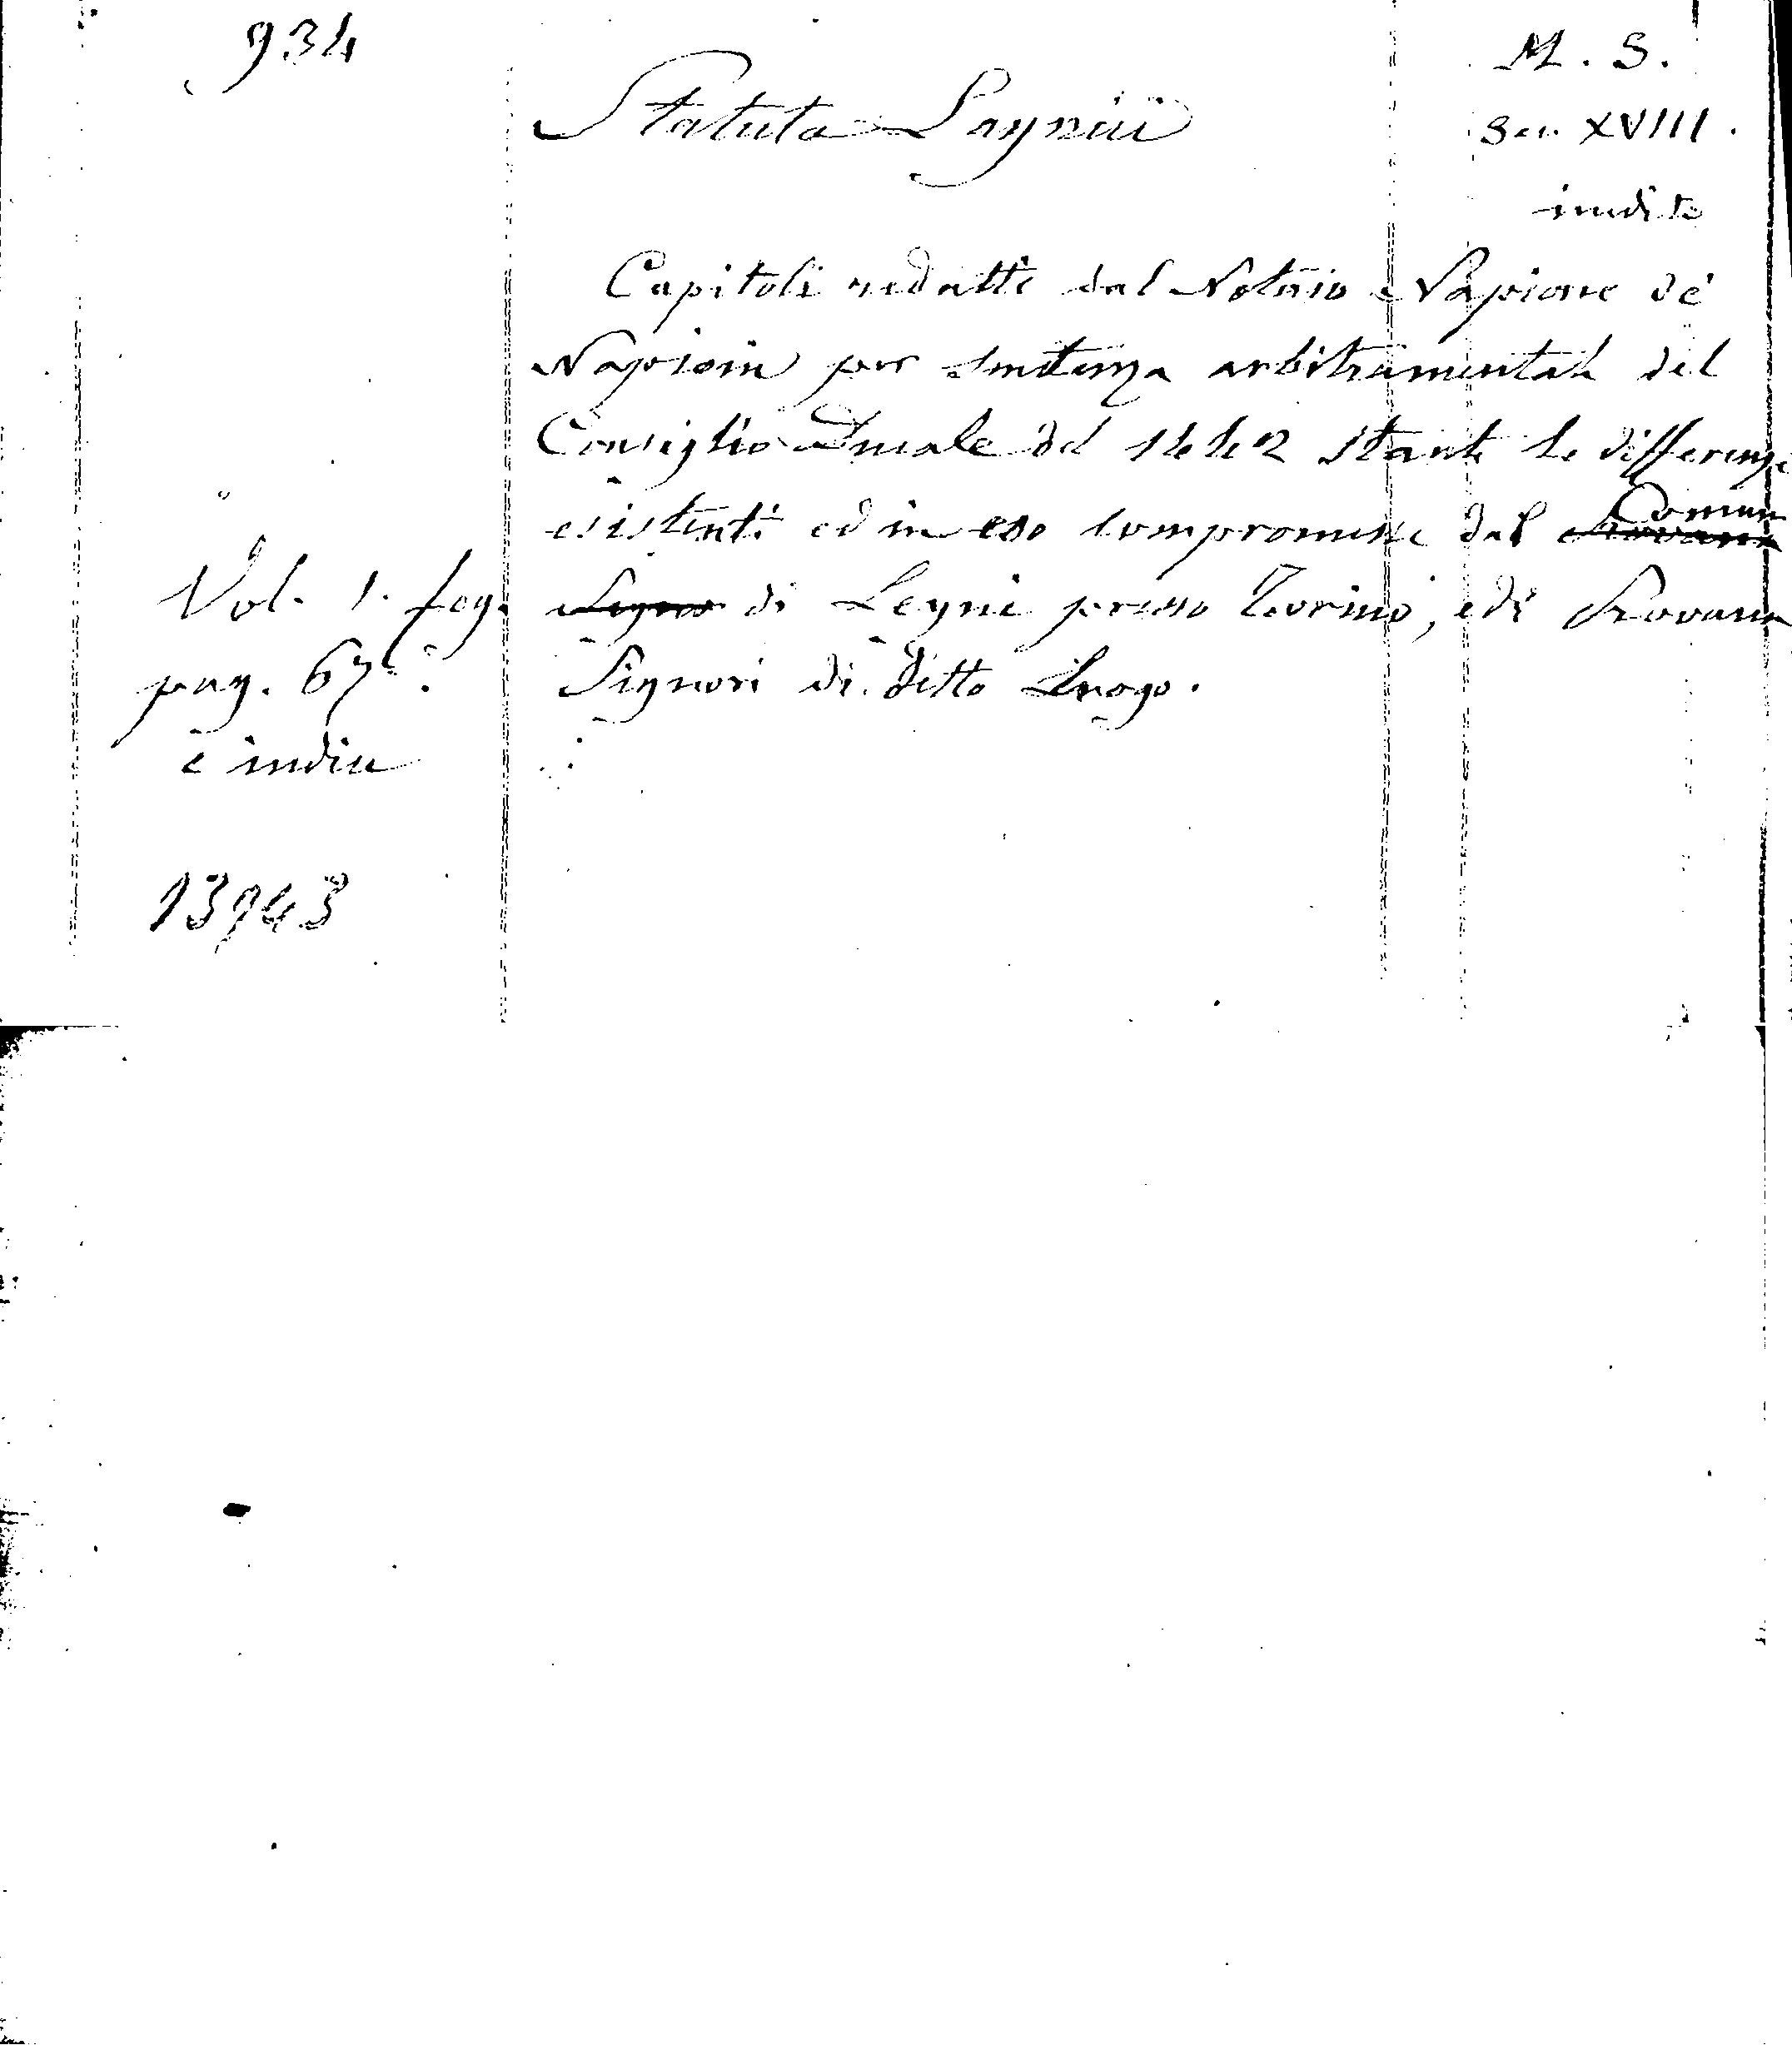 934
M. S.
Statuta Laynici
Sec. XVIII.
inedito
Capitoli redatti dal Notaio Napione de'
Napioni per sentenza arbitramentale del
Consiglio Ducale del 1442 stante le differenze
esistenti ed in esso compromesse dal Comun
Vol. 1. fog. di Leynì presso Torino, e di Provana
pag. 67.
Signori di detto Luogo.
e indice
13943